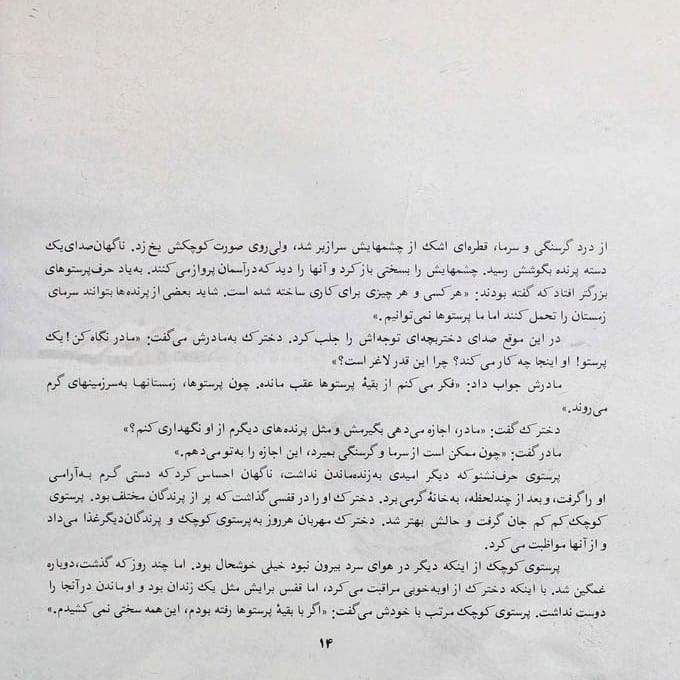 از درد گرسنگی و سرما، قطره‌ای اشک از چشمهایش سرازیر شد، ولی‌روی صورت کوچکش یخ زد. ناگهان صدای یک
دسته پرنده بگوشش رسید. چشمهایش را بسختی باز کرد و آنها را دید که درآسمان پرواز می کنند. به‌یاد حرف پرستوهای
بزرگتر افتاد که گفته بودند: «هر کسی و هر چیزی برای کاری ساخته شده است. شاید بعضی از پرنده‌ها بتوانند سرمای
زمستان را تحمل کنند اما ما پرستوها نمی توانیم.»
در این موقع صدای دختربچه‌ای توجه‌اش را جلب کرد. دخترک به‌مادرش می‌گفت: «مادر نگاه کن! یک
پرستو! او اینجا چه کار می کند؟ چرا این قدر لاغر است؟»
مادرش جواب داد: «فکر می کنم از بقیهٔ پرستوها عقب مانده. چون پرستوها، زمستانها به‌سرزمینهای گرم
می‌روند.»
دخترک گفت: «مادر، اجازه می‌دهی بگیرمش و مثل پرنده‌های دیگرم از او نگهداری کنم؟»
مادر گفت: «چون ممکن است از سرما و گرسنگی بمیرد، این اجازه را به‌تو می‌دهم.»
پرستوی حرف‌نشنو که دیگر امیدی به‌زنده‌ماندن نداشت، ناگهان احساس کرد که دستی گرم به‌آرامی
او را گرفت، و بعد از چند لحظه، به‌خانهٔ گرمی برد. دخترک او را در قفسی گذاشت که پر از پرندگان مختلف بود. پرستوی
کوچک کم کم جان گرفت و حالش بهتر شد. دخترک مهربان هرروز به‌پرستوی کوچک و پرندگان دیگر غذا می‌داد
و از آنها مواظبت می کرد.
پرستوی کوچک از اینکه دیگر در هوای سرد بیرون نبود خیلی خوشحال بود. اما چند روز که گذشت، دوباره
غمگین شد. با اینکه دخترک از او به‌خوبی مراقبت می کرد، اما قفس برایش مثل یک زندان بود و او ماندن در آنجا را
دوست نداشت. پرستوی کوچک مرتب با خودش می‌گفت: «اگر با بقیهٔ پرستوها رفته بودم، این همه سختی نمی کشیدم.»
۱۴